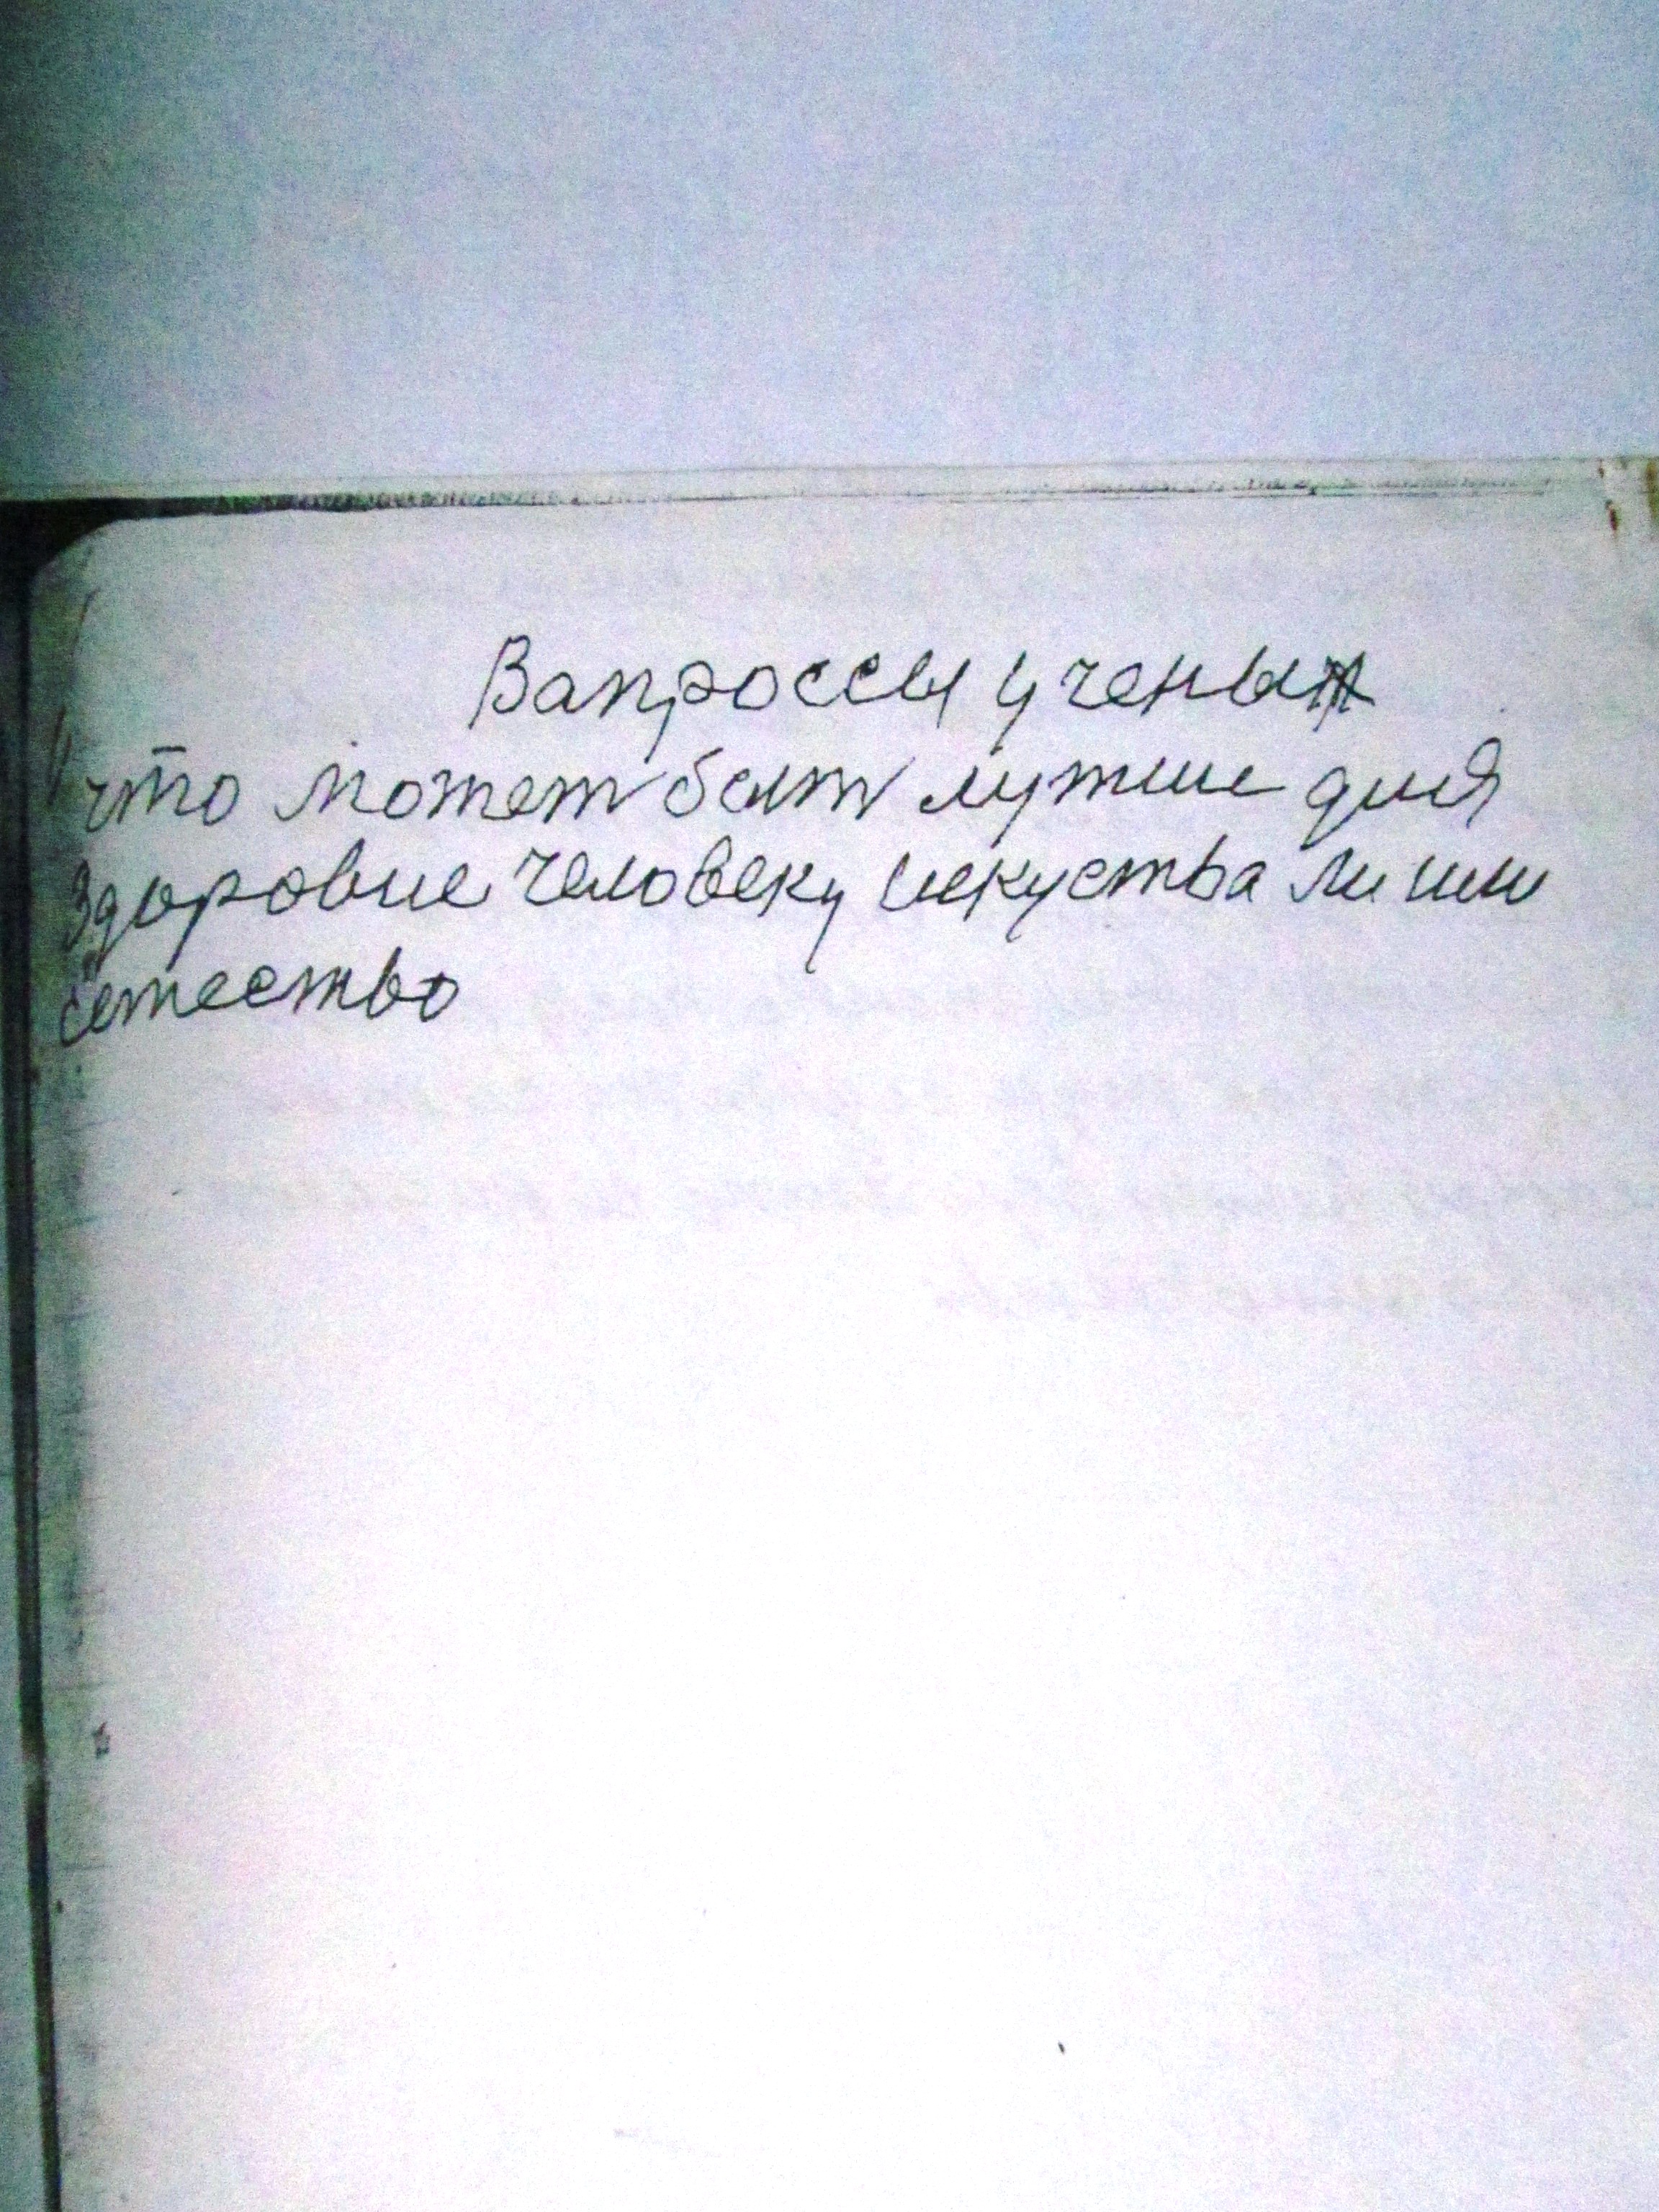 Вапроссы учены
что может быт лутше для
Здоровие человеку искуства ли или
естество